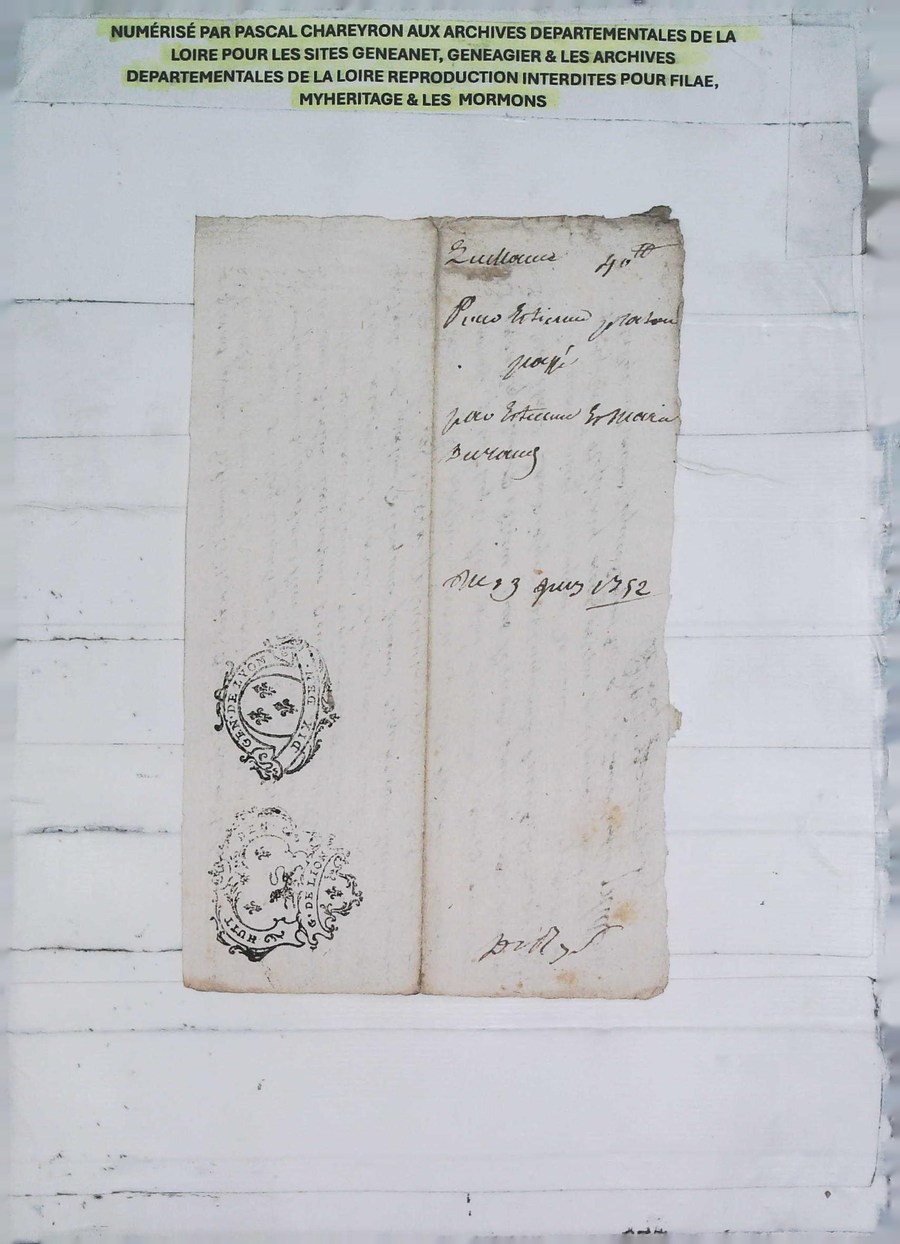 NUMÉRISÉ PAR PASCAL CHAREYRON AUX ARCHIVES DEPARTEMENTALES DE LA
LOIRE POUR LES SITES GENEANET, GENEAGIER & LES ARCHIVES
DEPARTEMENTALES DE LA LOIRE REPRODUCTION INTERDITES POUR FILAE,
MYHERITAGE & LES MORMONS
40tt
Estienne
par Estienne & Marie
Durang
Du 23 1752
GEN. DE LYON
DIX DEN.
HUIT DEN
G. DE LION